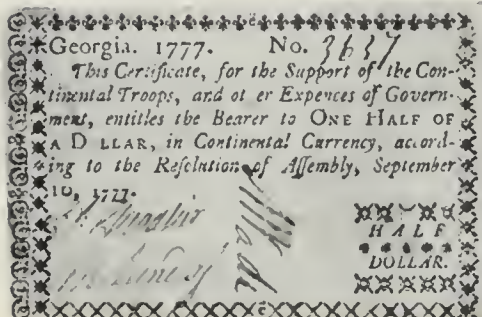 Georgia. 1777. No. 3637
This Certificate, for the Support of the Con-
tinental Troops, and ot er Expences of Govern-
ment, entitles the Bearer to ONE HALF OF
A D LLAR, in Continental Currency, accord-
ing to the Reſolution of Aſſembly, September
10, 1777.
HALF
DOLLAR.